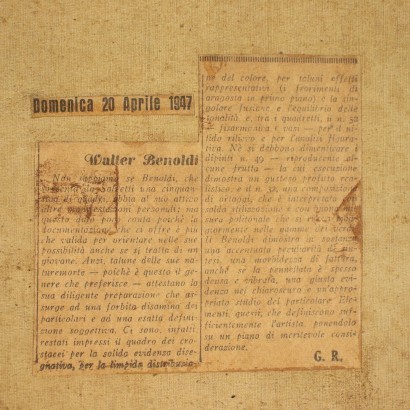 Domenica 20 Aprile 1947
Walter Benoldi
Non sappiamo se Benoldi, che
presenta da una cinquan-
tina di quadri, abbia al suo attivo
altre manifestazioni personali; ma
questo dato poco conta poichè la
documentazione che ci offre è più
che valida per orientare nelle sue
possibilità anche se si tratta di un
giovane. Anzi, talune delle sue na-
turemorte — poichè è questo il gene-
re che preferisce — attestano la
sua diligente preparazione che as-
surge ad una forbita disamina dei
particolari e ad una esatta defini-
zione soggettiva. Ci sono, infatti
restati impressi il quadro dei cro-
stacei per la solida evidenza dise-
gnativa, per la limpida distribuzio-
ne del colore, per taluni effetti
rappresentativi (i frammenti di
aragosta in primo piano) e la sin-
golare fusione e l'equilibrio delle
tonalità e, tra i quadretti, il n. 52
— fisarmonica e vasi — per il ni-
tido rilievo e per l'analisi figura-
tiva. Nè si debbono dimenticare i
dipinti n. 49 — riproducente al-
cune frutta — la cui esecuzione
dimostra un gustoso prefisso veri-
stico; e il n. 32, una composizione
di ortaggi, che è interpretato con
salda situazione e con quella
cura particolare che si nota mag-
giormente nelle gamme dei verdi
che Benoldi dimostra di sostenere
una accentuata pecularietà dei to-
ni, una morbidezza di fattura,
anche se la pennellata è spesso
densa e vibrata, una giusta evi-
denza nel chiaroscuro e un'appro-
priato studio del particolare. Ele-
menti, questi, che definiscono suf-
ficientemente l'artista ponendolo
su un piano di meritevole consi-
derazione.
G. R.